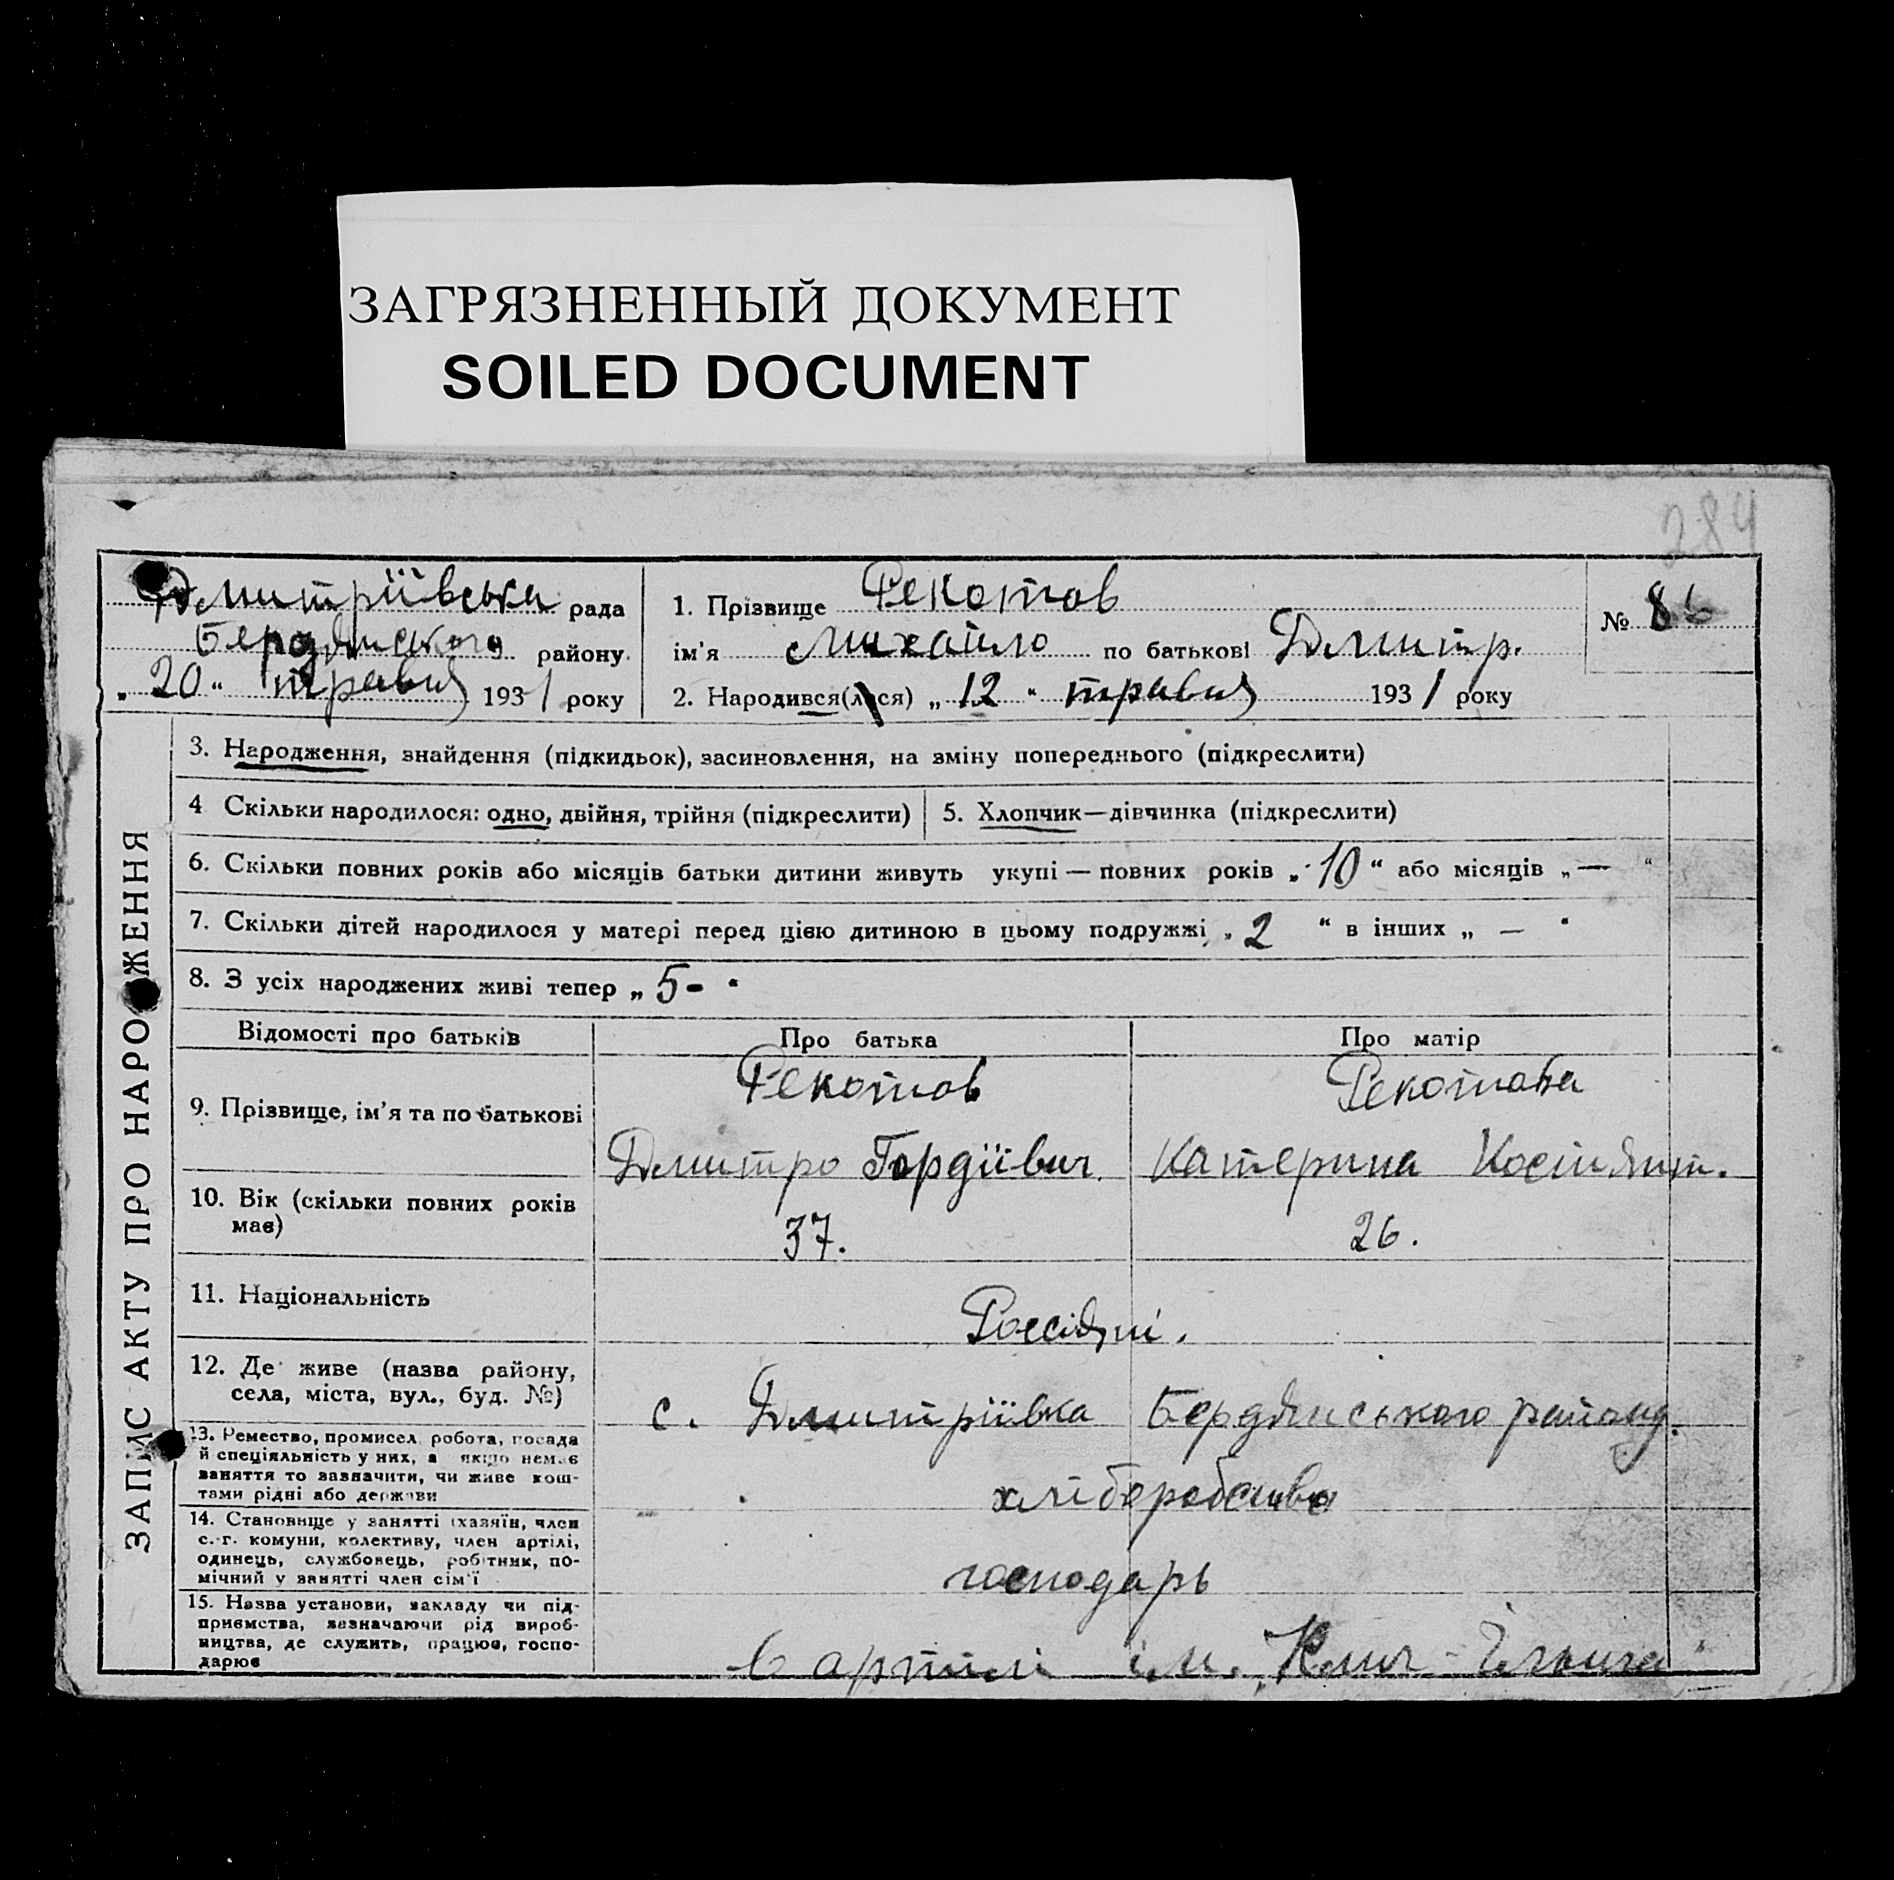 ЗАГРЯЗНЕННЫЙ ДОКУМЕНТ
SOILED DOCUMENT
284
Дмитріївська рада
Бердянського району
„ 20 “ травня 1931 року
1. Прізвище Рекотов
ім’я Михайло по батькові Дмитр.
2. Народився(лася) „ 12 “ травня 1931 року
№ 86
ЗАПИС АКТУ ПРО НАРОДЖЕННЯ
3. Народження, знайдення (підкидьок), засиновлення, на зміну попереднього (підкреслити)
4 Скільки народилося: одно, двійня, трійня (підкреслити)
5. Хлопчик—дівчинка (підкреслити)
6. Скільки повних років або місяців батьки дитини живуть укупі — повних років „ 10 “ або місяців „ — “
7. Скільки дітей народилося у матері перед цією дитиною в цьому подружжі „ 2 “ в інших „ — “
8. З усіх народжених живі тепер „ 5- “
Відомості про батьків Про батька Про матір
9. Прізвище, ім’я та по батькові
Рекотов Рекотова
Дмитро Гордіївич. Катерина
10. Вік (скільки повних років має)
37. 26.
11. Національність
Россіяні.
12. Де живе (назва району,
села, міста, вул., буд. №)
с. Дмитріївка Бердянського району.
13. Ремество, промисел, робота, посада
й спеціяльність у них, а якщо немає
заняття то зазначити, чи живе кош-
тами рідні або держави
хліборобство
14. Становище у занятті (хазяїн, член
с.-г. комуни, колективу, член артілі,
одинець, службовець, робітник, по-
мічний у занятті член сім’ї
господарь
15. Назва установи, закладу чи під-
приємства, зазначаючи рід вироб-
ництва, де служить, працює, госпо-
дарює
в артілі ім. „Клич-Ілліча“